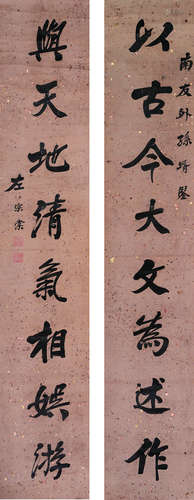 南友外孫壻鑒
以古今大文為述作
與天地清氣相娛游
左宗棠